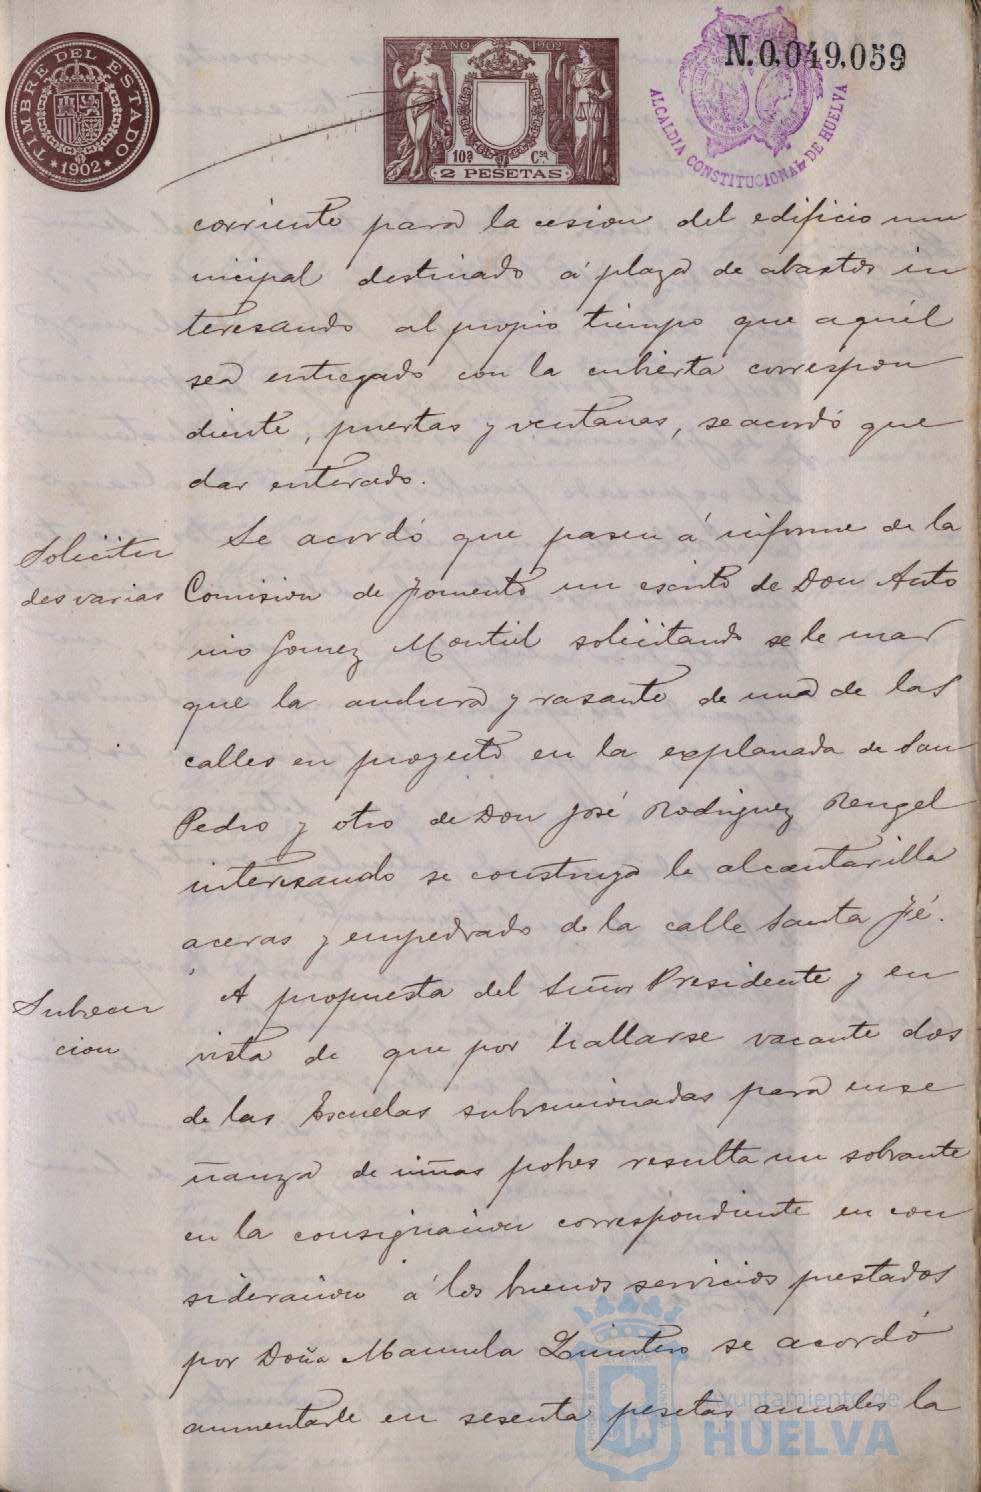 TIMBRE DEL ESTADO
*1902*
AÑO 1902
10ª Cse
2 PESETAS
N.0,049,059
ALCALDIA CONSTITUCIONAL DE HUELVA
corriente para la cesion del edificio mu
nicipal destinado á plaza de abastos in
teresando al propio tiempo que aquél
sea entregado con la cubierta correspon
diente, puertas y ventanas, se acordó que
dar enterado.
Solicitu
des varias
Se acordó que pasen á informe de la
Comision de Fomento un escrito de Don Anto
nio Gomez Montiel solicitando se le mar
que la anchura y rasante de una de las
calles en proyecto en la explanada de San
Pedro y otro de Don José Rodriguez Rengel
interesando se construya la alcantarilla
aceras y empedrado de la calle Santa Fé.
Subven
cion
A propuesta del Señor Presidente y en
vista de que por hallarse vacante dos
de las Escuelas subvencionadas para ense
ñanza de niñas pobres resulta un sobrante
en la consignacion correspondiente en con
sideracion á los buenos servicios prestados
por Doña Manuela Quintero se acordó
aumentarle en sesenta pesetas anuales la
Ayuntamiento de
HUELVA